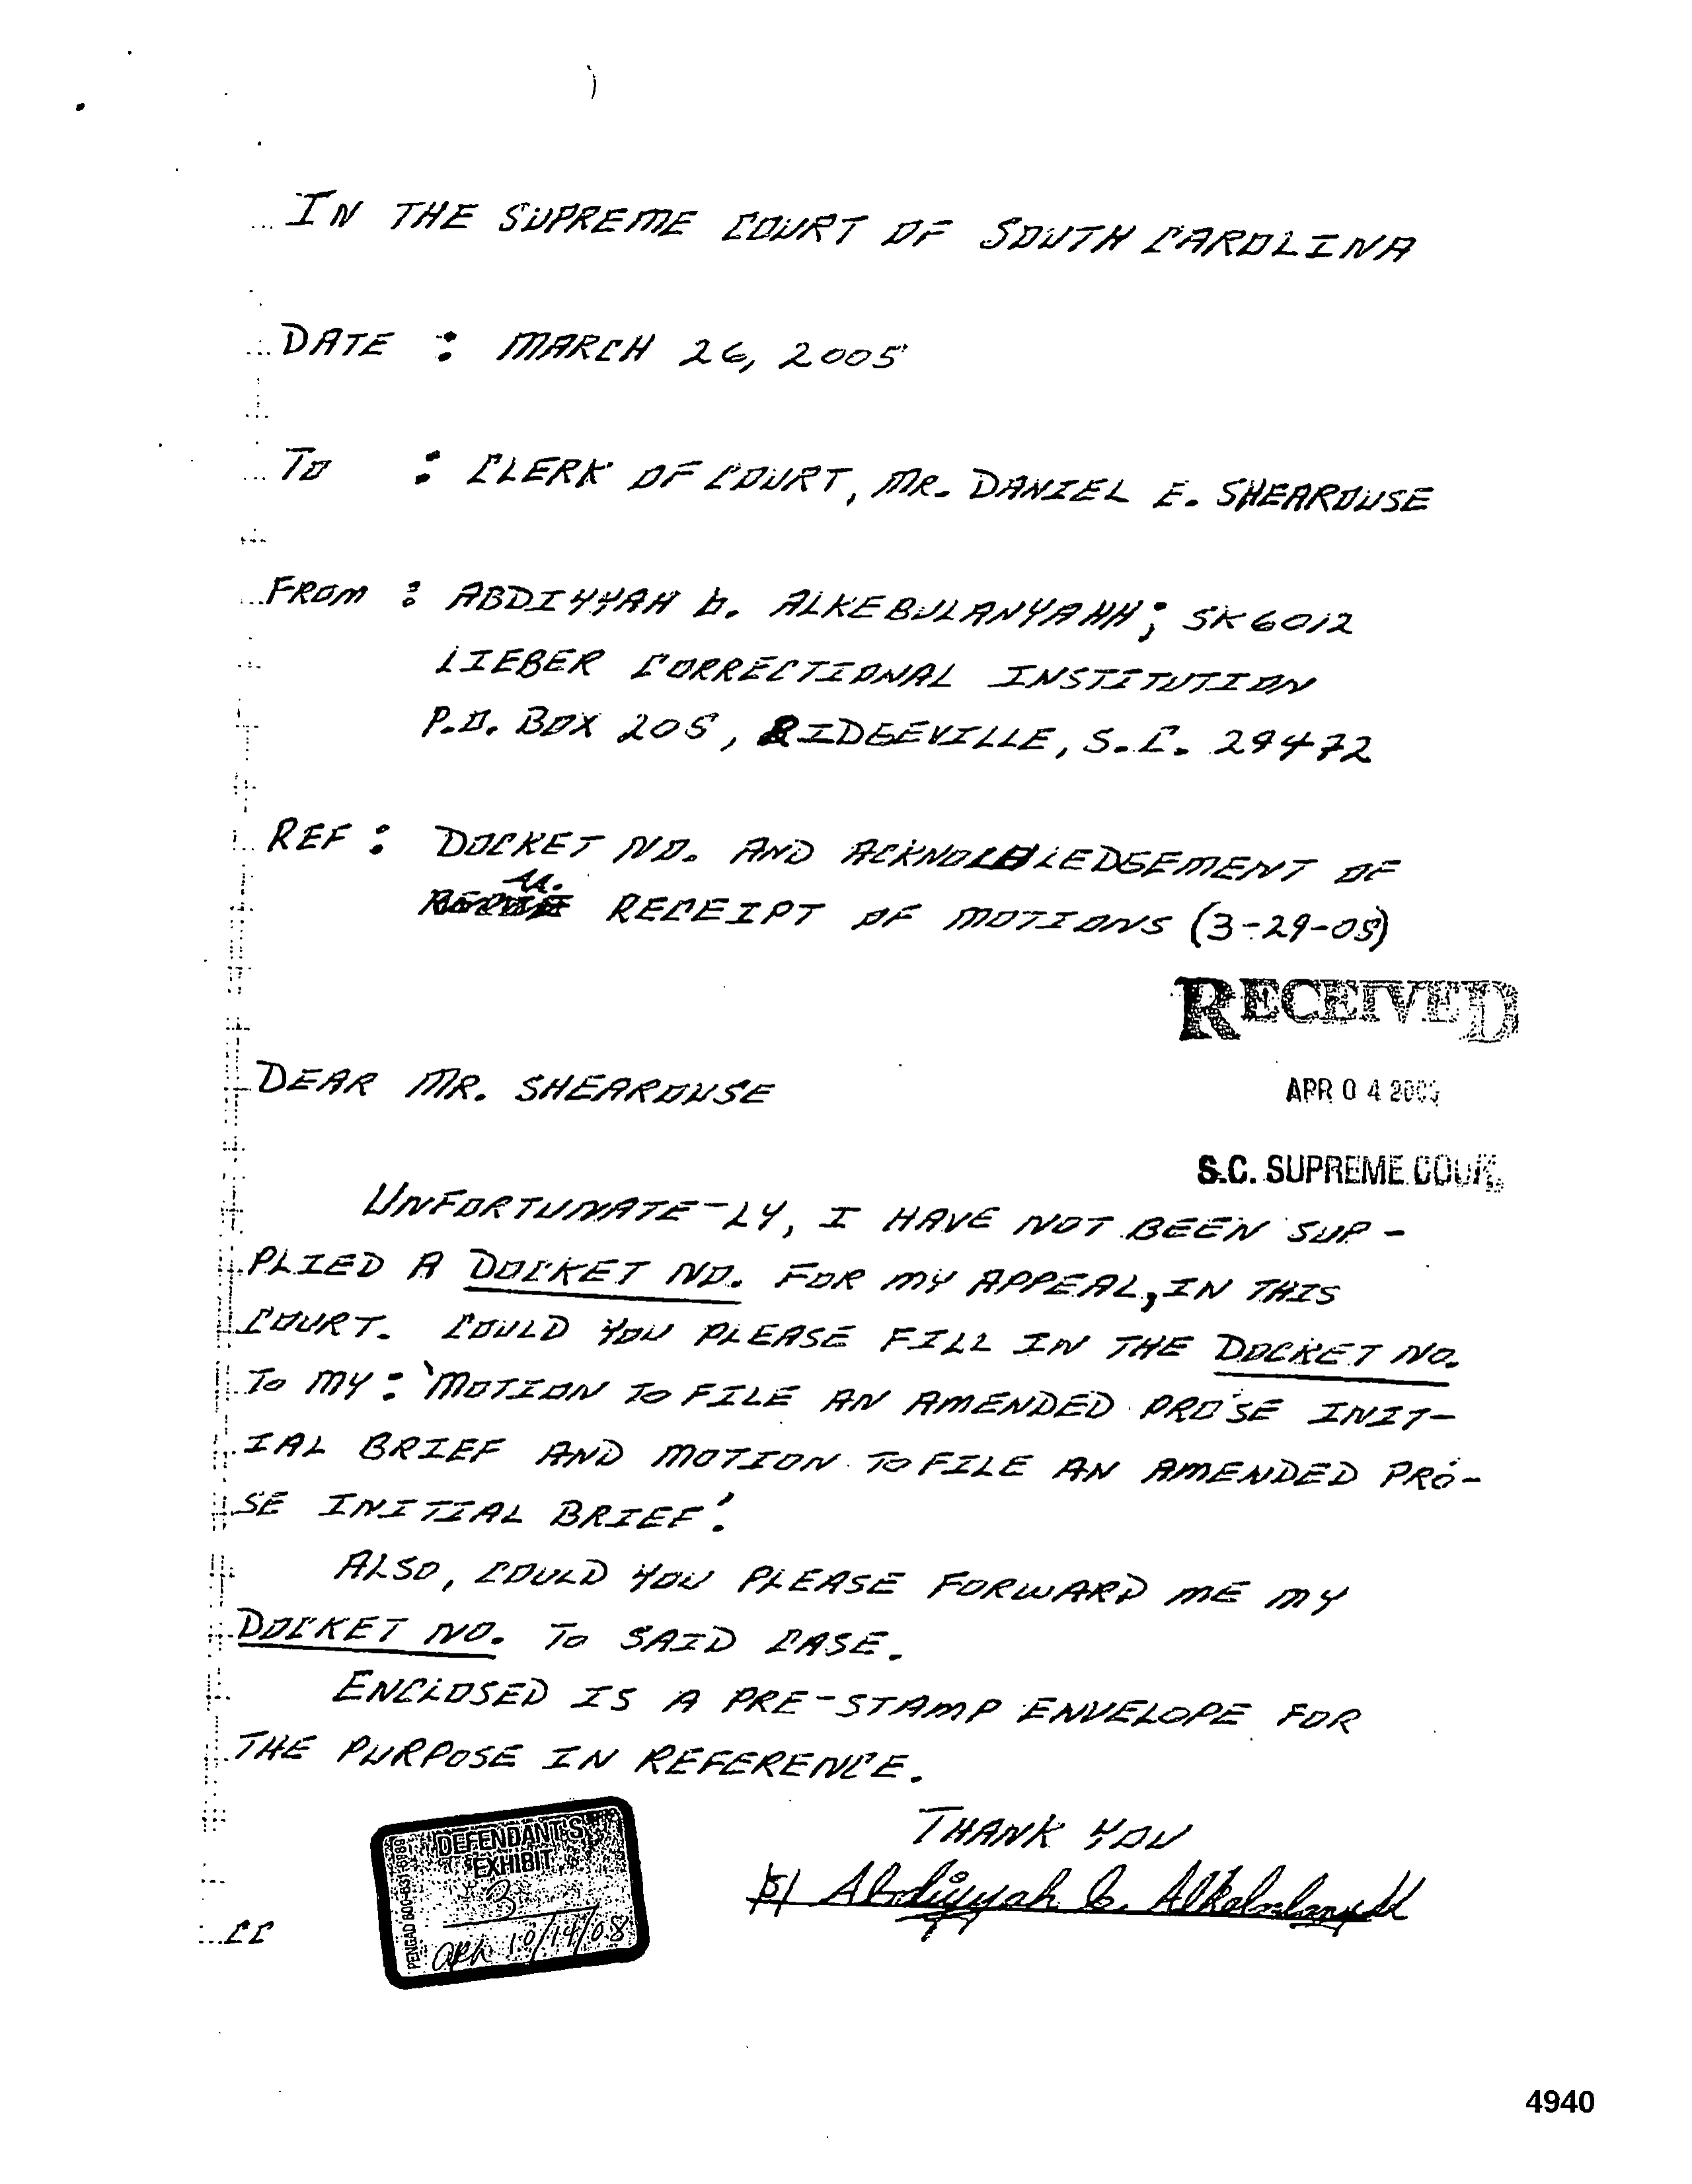 IN THE SUPREME COURT OF SOUTH CAROLINA
DATE : MARCH 26, 2005
TO : CLERK OF COURT, MR. DANIEL E. SHEAROUSE
FROM : ABDIYYAH b. ALKEBULANYAHH; SK6012
LIEBER CORRECTIONAL INSTITUTION
P.O. BOX 205, RIDGEVILLE, S.C. 29472
REF : DOCKET NO. AND ACKNOWLEDGEMENT OF
RECEIPT OF MOTIONS (3-29-05)
RECEIVED
DEAR MR. SHEAROUSE
APR 04 2005
S.C. SUPREME COUR
UNFORTUNATE-LY, I HAVE NOT BEEN SUP-
PLIED A DOCKET NO. FOR MY APPEAL, IN THIS
COURT. COULD YOU PLEASE FILL IN THE DOCKET NO.
TO MY : 'MOTION TO FILE AN AMENDED PRO'SE INIT-
IAL BRIEF AND MOTION TO FILE AN AMENDED PRO-
SE INITIAL BRIEF'.
ALSO, COULD YOU PLEASE FORWARD ME MY
DOCKET NO. TO SAID CASE.
ENCLOSED IS A PRE-STAMP ENVELOPE FOR
THE PURPOSE IN REFERENCE.
THANK YOU
/s/ Abdiyyah b. Alkebulanyahh
CC
DEFENDANT'S
EXHIBIT
3
10/14/08
4940